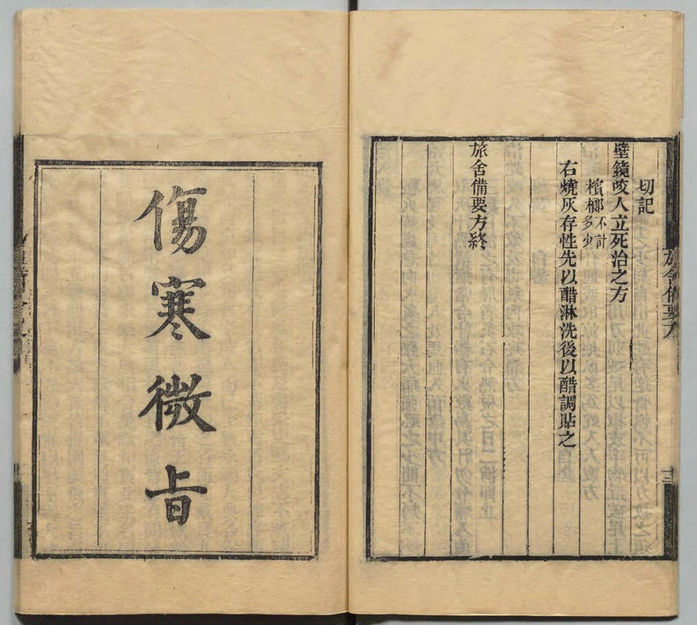 切記
壁鏡咬人立死治之方
檳榔不計多少
右燒灰存性先以醋淋洗後以醋調貼之
旅舍備要方終
旅舍備要方
傷寒微旨